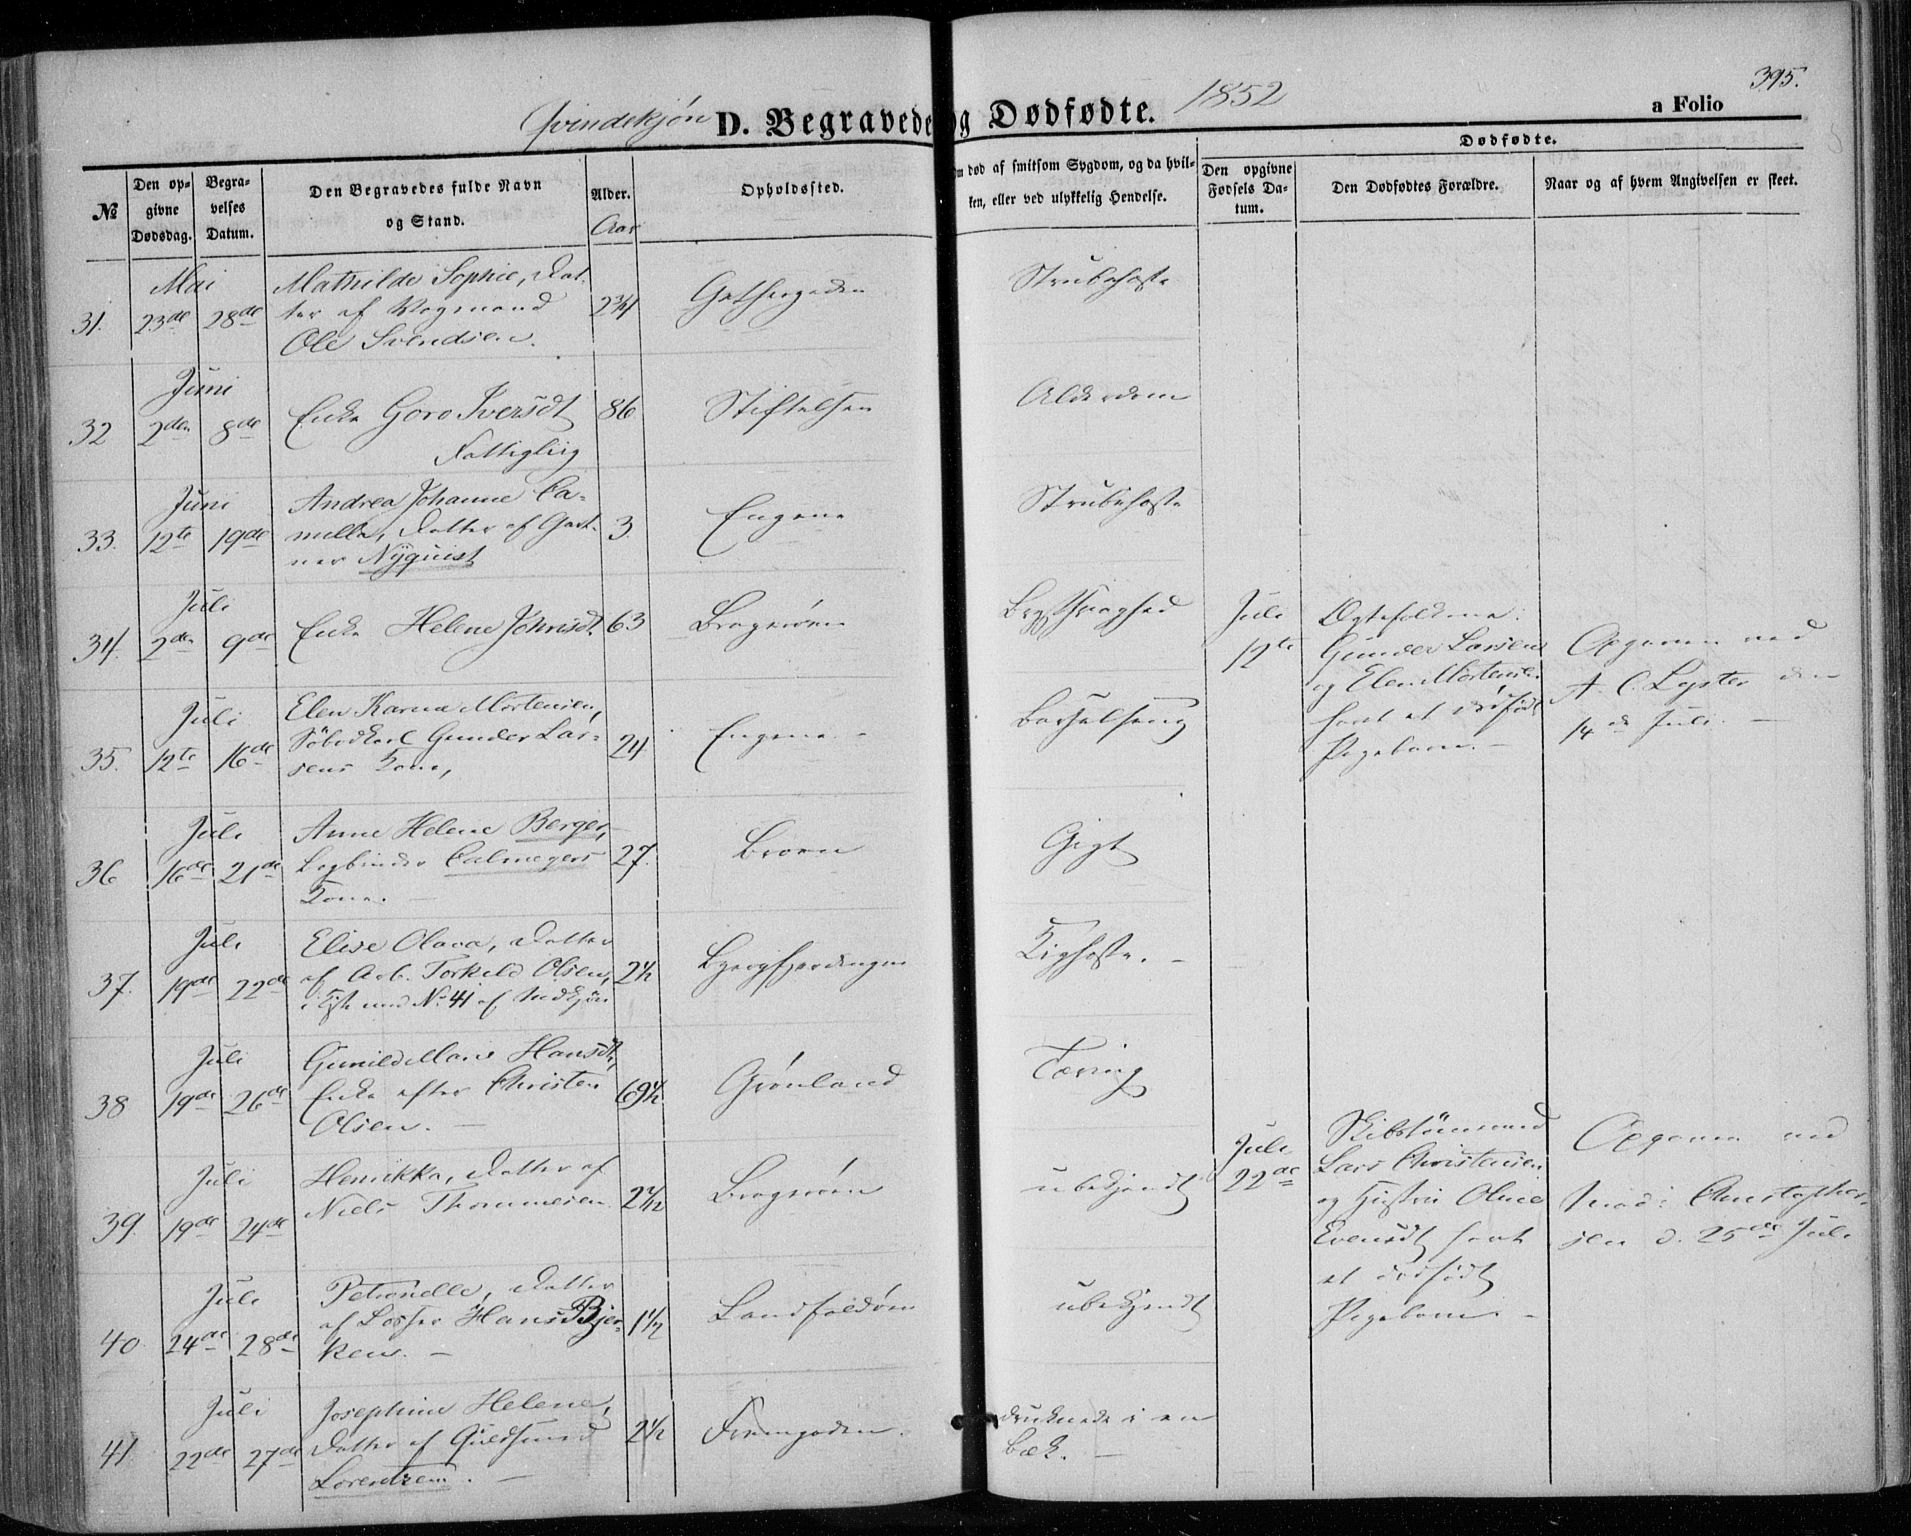 Qvindekjøn D. Begravede og Dødfødte. 1852
a Folio 395.
№
Den opgivne Dødsdag.
Begravelses Datum.
Den Begravedes fulde Navn og Stand.
Alder.
Aar
Opholdssted.
Om død af smitsom Sygdom, og da hvilken, eller ved ulykkelig Hendelse.
Dødfødte.
Den opgivne Fødsels Datum.
Den Dødfødtes Forældre.
Naar og af hvem Angivelsen er skeet.
31. Mai 23de 28de
Mathilde Sophie, Dat-
ter af Vognmand
Ole Svendsen.
2 3/4
Strubehoste
32 Juni 2den 8de
Enke Goro Iversdt
Fattiglig
86
Stiftelsen
Alderdom
33. Juni 12te 19de
Andrea Johanne Ca-
milla, Datter af Gart-
ner Nyquist
3.
Engene
Strubehoste
34. Juli 2den 9de
Enke Helene Johnsdt.
63
Bragerøen
Brystsvaghed
35. Juli 12te 16de
Elen Karine Mortensen,
Søbodkarl Gunder Lar-
sens Kone,
24.
Engene. -
Barselseng
Juli
12te
Ægtefolkene:
Gunder Larsen
og Elen Mortensen
havt et dødfødt
Pigebarn. -
Opgaven ved
A. C. Lyster den
14de Juli. -
36 Juli 16de 21de
Anne Helene Berger,
Bogbinder Calmeyers
Kone. -
27.
Broen
Gigt
37. Juli 19de 22de
Elise Olava, Datter
af Arb. Torkild Olsen,
i Kiste med No 41 af Mdkjøn
2 1/2
Bjergfjerdingen
Kighoste. -
38 Juli 19de 26de
Gunild Marie Hansdt,
Enke efter Christen
Olsen. -
69 1/2
Grønland
Tæring
39. Juli 19de 24de
Henrikka, Datter af
Niels Thommesen
Bragerøen
ubekjendt
Juli
22de
Skibstømmermd
Lars Christensen
og Hustru Oline
Evensdt havt
et dødfødt
Pigebarn. -
Opgaven ved
Mad: Christopher-
sen d. 25de Juli
40. Juli 24de 28de
Petronelle, Datter
af Losser Hans Bjer-
ken. -
1 1/2
Landfaldøen
ubekjendt
41 Juli 22de 27de
Josephine Helene,
Datter af Guldsmed
Lorentzen. -
2 1/2
druknede i en
Bæk. -